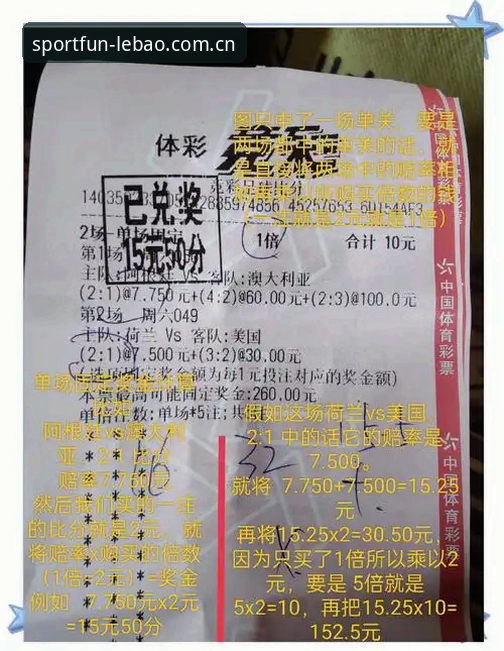 sportfun-lebao.com.cn
图只中了一场单关，要是
两场都中的单关的话，就
是直接将两场中的赔率相
（一注就是2元就是1倍）
体彩
竞彩
已兑奖
15元50分
2场-单场固定
1倍 合计 10元
第1场
主队:阿根廷 Vs 客队:澳大利亚
(2:1)@7.750元+(4:2)@60.00元+(2:3)@100.0元
第2场 周六049
主队:荷兰 Vs 客队:美国
(2:1)@7.500元+(3:2)@30.00元
(选项固定奖金额为每1元投注对应的奖金额)
本票最高可能固定奖金:260.00元
单倍注数:单场*5注;共
中国体育彩票
中国体育彩票
单场固定奖金计算
阿根廷vs澳大利
亚 2:1 比分
赔率7.750元
然后我们买的一注
的比分就是2元，就
将赔率x购买的倍数
（1倍=2元）=奖金
例如 7.750元x2元
=15元50分
假如这场荷兰vs美国
2:1 中的话它的赔率是
7.500。
就将 7.750+7.500=15.25
元
再将15.25x2=30.50元，
因为只买了1倍所以乘以2
元，要是 5倍就是
5x2=10，再把15.25x10=
152.5元